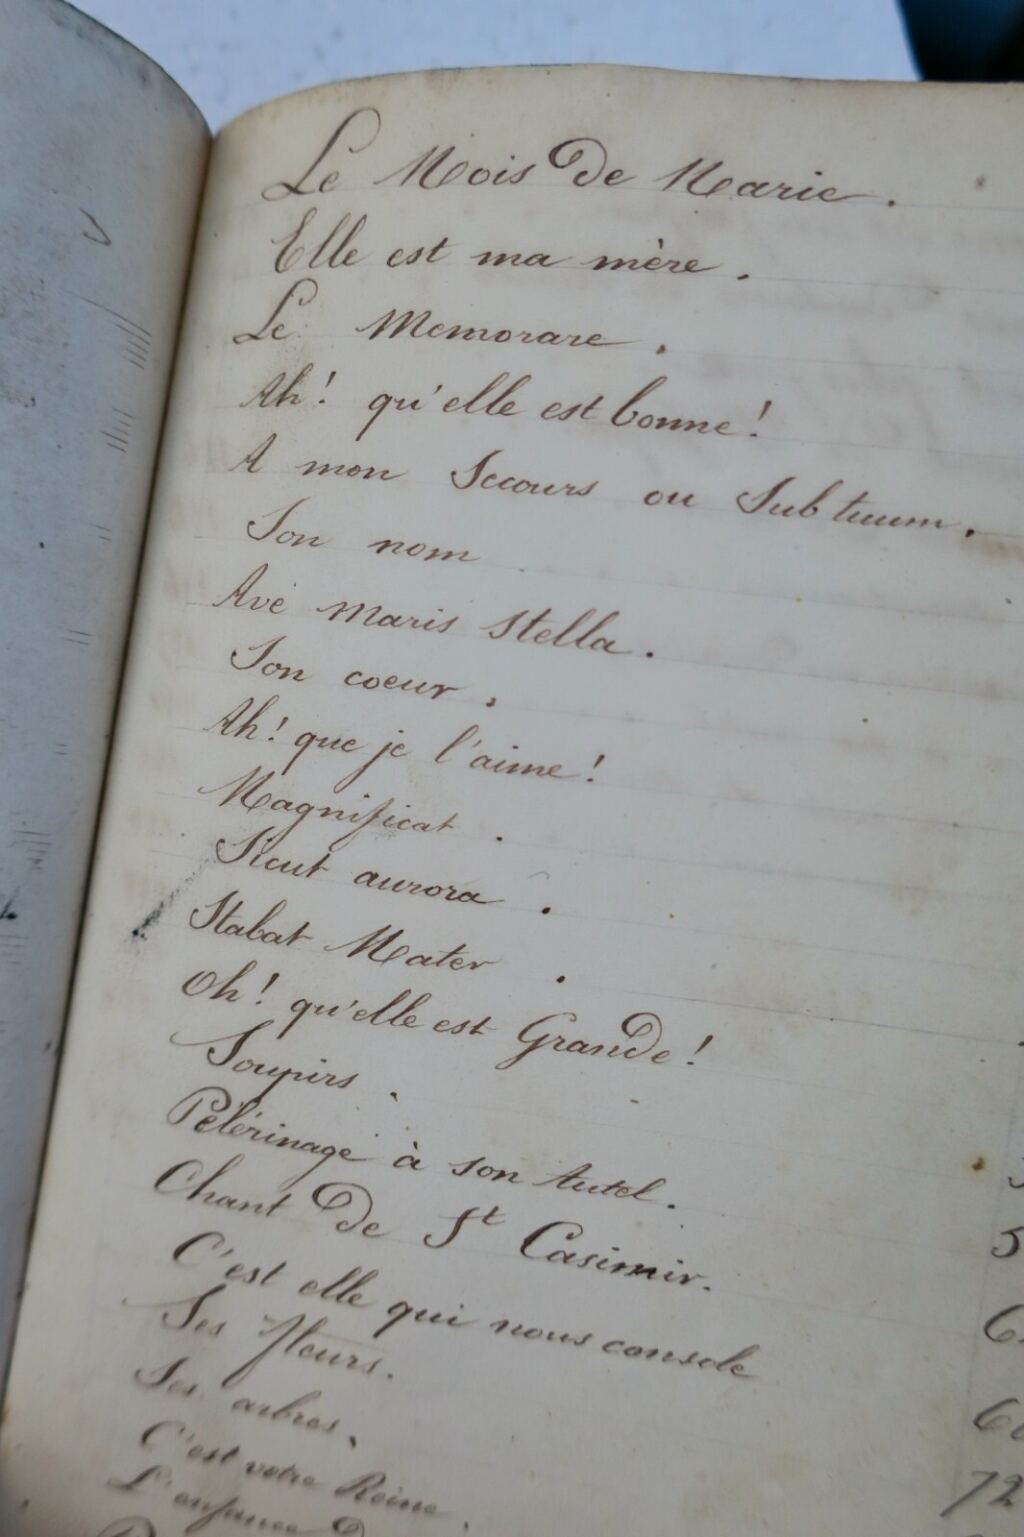 Le Mois De Marie.
Elle est ma mère.
Le Memorare.
Ah! qu'elle est bonne!
A mon Secours ou Sub tuum.
Son nom
Ave Maris Stella.
Son coeur.
Ah! que je l'aime!
Magnificat.
Sicut aurora.
Stabat Mater.
Oh! qu'elle est Grande!
Soupirs.
Pélérinage à son Autel.
Chant De St Casimir. 5
C'est elle qui nous console 6
Ses fleurs.
Ses arbres. 6
C'est votre Reine. 72
L'enfance D